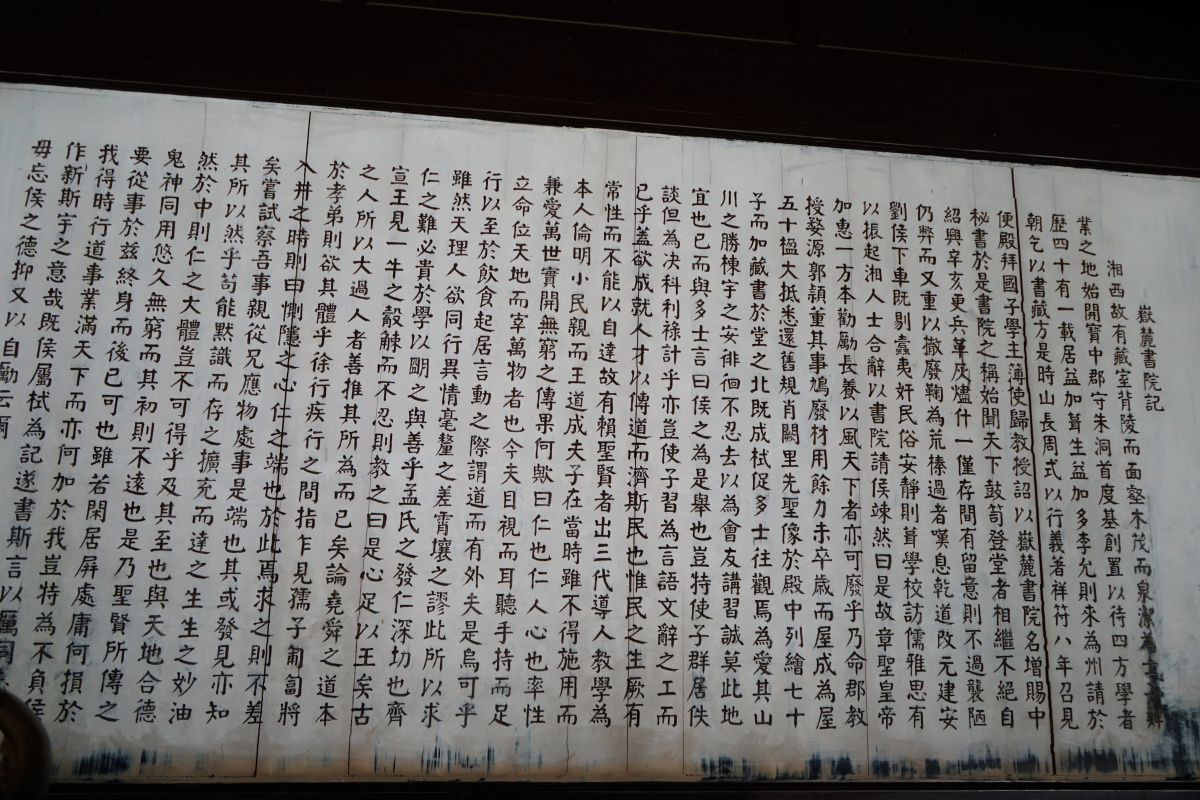 嶽麓書院記
湘西故有藏室背陵而面壑木茂而泉潔為士
業之地始開寶中郡守朱洞首度基創置以待四方學者
歷四十有一載居益加葺生益加多李允則來為州請於
朝乞以書藏方是時山長周式以行義著祥符八年召見
便殿拜國子學主簿使歸教授詔以嶽麓書院名增賜中
秘書於是書院之稱始聞天下鼓笥登堂者相繼不絕自
紹興辛亥更兵革灰燼什一僅存間有留意則不過襲陋
仍弊而又重以撤廢鞠為荒榛過者嘆息乾道改元建安
劉侯下車既剔蠹夷奸民俗安靜則葺學校訪儒雅思有
以振起湘人士合辭以書院請侯竦然曰是故章聖皇帝
加惠一方本勸勵長養以風天下者亦可廢乎乃命郡教
授婺源郭穎董其事鳩廢材用餘力未卒歲而屋成為屋
五十楹大抵悉還舊規肖闕里先聖像於殿中列繪七十
子而加藏書於堂之北既成栻促多士往觀焉為愛其山
川之勝棟宇之安徘徊不忍去以為會友講習誠莫此地
宜也已而與多士言曰侯之為是舉也豈特使子群居佚
談但為決科利祿計乎亦豈使子習為言語文辭之工而
已乎蓋欲成就人才以傳道而濟斯民也惟民之生厥有
常性而不能以自達故有賴聖賢者出三代導人教學為
本人倫明小民親而王道成夫子在當時雖不得施用而
兼愛萬世實開無窮之傳果何歟曰仁也仁人心也率性
立命位天地而宰萬物者也今夫目視而耳聽手持而足
行以至於飲食起居言動之際謂道而有外夫是烏可乎
雖然天理人欲同行異情毫釐之差霄壤之謬此所以求
仁之難必貴於學以明之與善乎孟氏之發仁深切也齊
宣王見一牛之觳觫而不忍則教之曰是心足以王矣古
之人所以大過人者善推其所為而已矣論堯舜之道本
於孝弟則欲其體乎徐行疾行之間指乍見孺子匍匐將
入井之時則曰惻隱之心仁之端也於此焉求之則不差
矣嘗試察吾事親從兄應物處事是端也其或發見亦知
其所以然乎苟能默識而存之擴充而達之生生之妙油
然於中則仁之大體豈不可得乎及其至也與天地合德
鬼神同用悠久無窮而其初則不遠也是乃聖賢所傳之
要從事於茲終身而後已可也雖若閑居屏處庸何損於
我得時行道事業滿天下而亦何加於我豈特為不負侯
作新斯宇之意哉既侯屬栻為記遂書斯言以厲同
毋忘侯之德抑又以自勵云爾